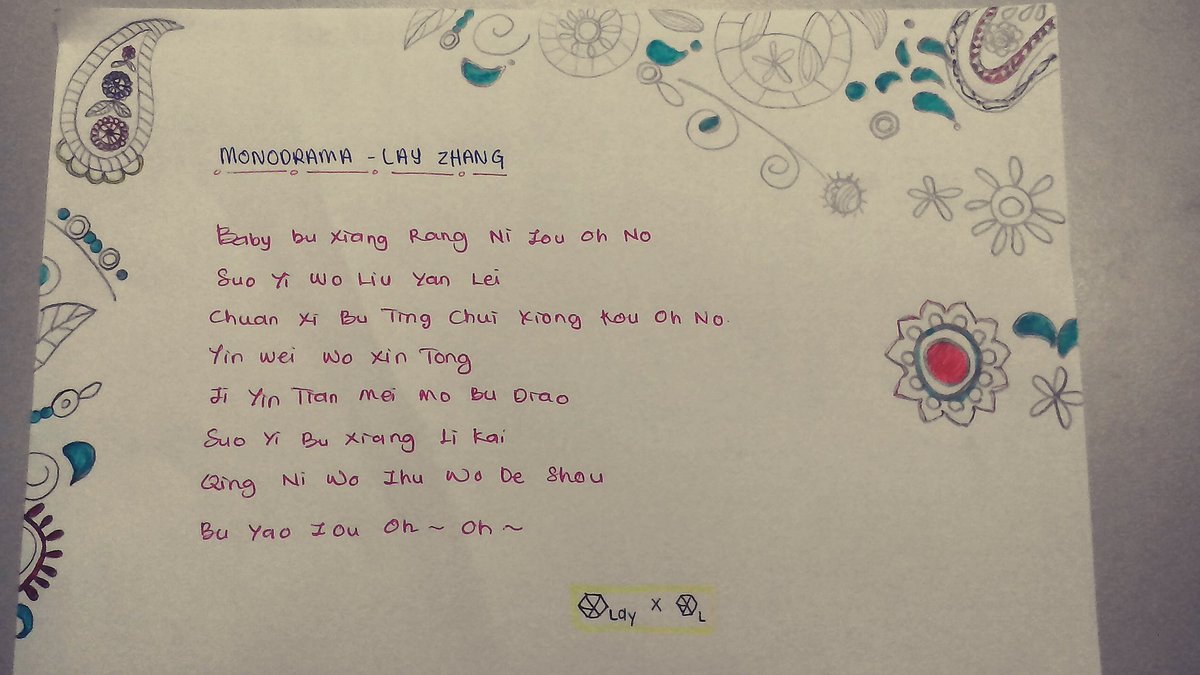 MONODRAMA - LAY ZHANG
Baby bu Xiang Rang Ni Zou Oh No
Suo Yi Wo Liu Yan Lei
Chuan Xi Bu Ting Chui Xiong Kou Oh No.
Yin Wei Wo Xin Tong
Ji Yin Tian Mei Mo Bu Diao
Suo Yi Bu Xiang Li Kai
Qing Ni Wo Zhu Wo De Shou
Bu Yao Zou Oh ~ Oh ~
Lay x L